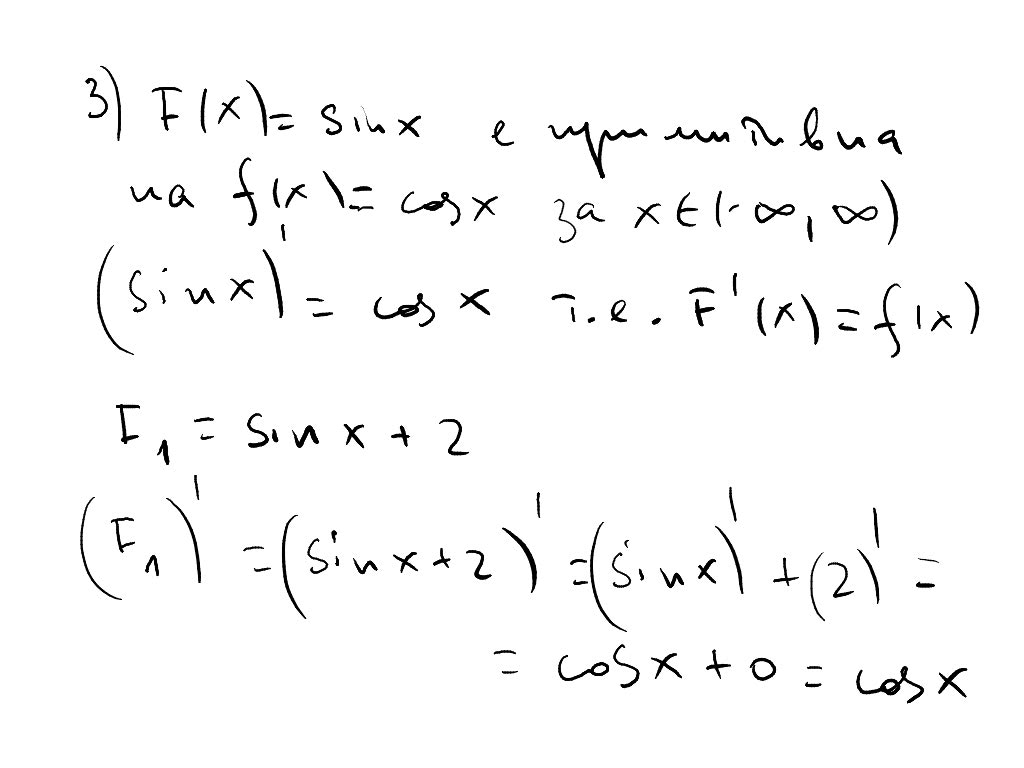 3) F(x) = sin x е примитивна
на f(x) = cos x за x ∈ (-∞, ∞)
(sin x)' = cos x т.е. F'(x) = f(x)
F₁ = sin x + 2
(F₁)' = (sin x + 2)' = (sin x)' + (2)' =
= cos x + 0 = cos x